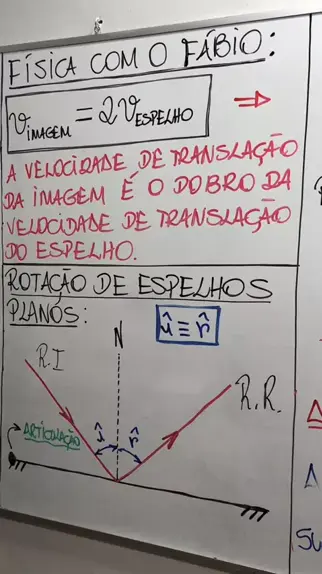 FÍSICA COM O FÁBIO:
VIMAGEM = 2VESPELHO ⇒
A VELOCIDADE DE TRANSLAÇÃO
DA IMAGEM É O DOBRO DA
VELOCIDADE DE TRANSLAÇÃO
DO ESPELHO.
ROTAÇÃO DE ESPELHOS
PLANOS:
î ≡ r̂
N
R.I
R.R.
ARTICULAÇÃO
î
r̂